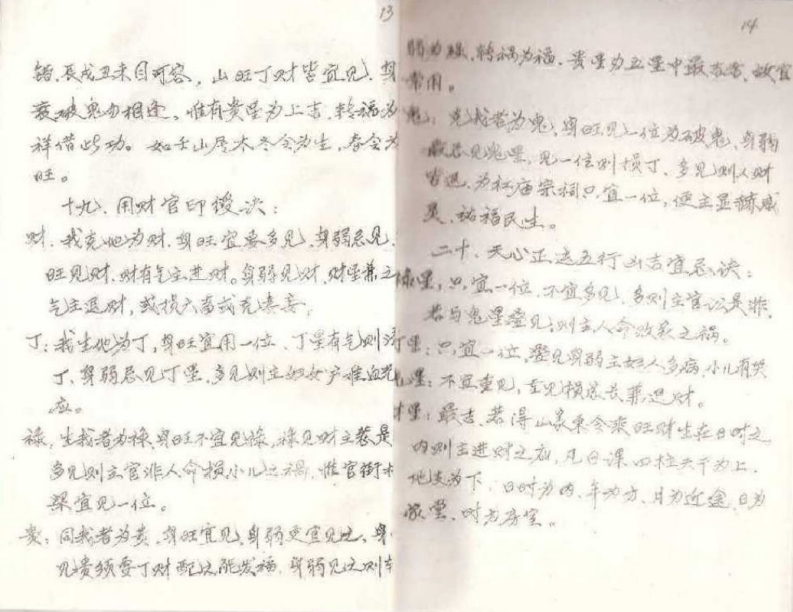 13
错,辰戌丑未自可容,山旺丁财皆宜见,身
衰破鬼勿相逢,惟有贵星为上吉,转祸为
祥借此功。如壬山居木冬令为生,春令为
旺。
十九、用财官印贵诀:
财:我克他为财,身旺宜要多见,身弱忌见,
旺见财,财有气主进财。身弱见财,财星兼
气主退财,或损六畜或克妻妾,
丁:我生他为丁,身旺宜用一位,丁星有气则
丁,身弱忌见丁星,多见则主妇女产难血光
应。
禄,生我者为禄,身旺不宜见禄,禄见财主
多见则主官非人命损小儿之祸,惟官衙
梁宜见一位。
贵:同我者为贵,身旺宜见,身弱更宜见之,身
见贵须要丁财配之能发福,身弱见之则
14
弱为强,转祸为福,贵星为五星中最吉者,故宜
常用。
鬼:克我者为鬼,身旺见一位为破鬼,身弱
最忌见鬼星,见一位则损丁,多见则人财
皆退,为社庙宗祠只宜一位,便主显赫威
灵,祐福民生。
二十、天心正运五行凶吉宜忌诀:
禄星,只宜一位,不宜多见,多则主官讼是非,
若与鬼星叠见,则主人命败家之祸。
星:只宜一位,叠见身弱主妇人多病,小儿有哭
星:不宜重见,重见损宅长兼退财。
星:最吉,若得山家乘令乘旺财生在日时之
内则主进财之应,凡日课四柱天干为上,
地支为下,日时为内,年为方,月为近途,日为
家堂,时为房室。